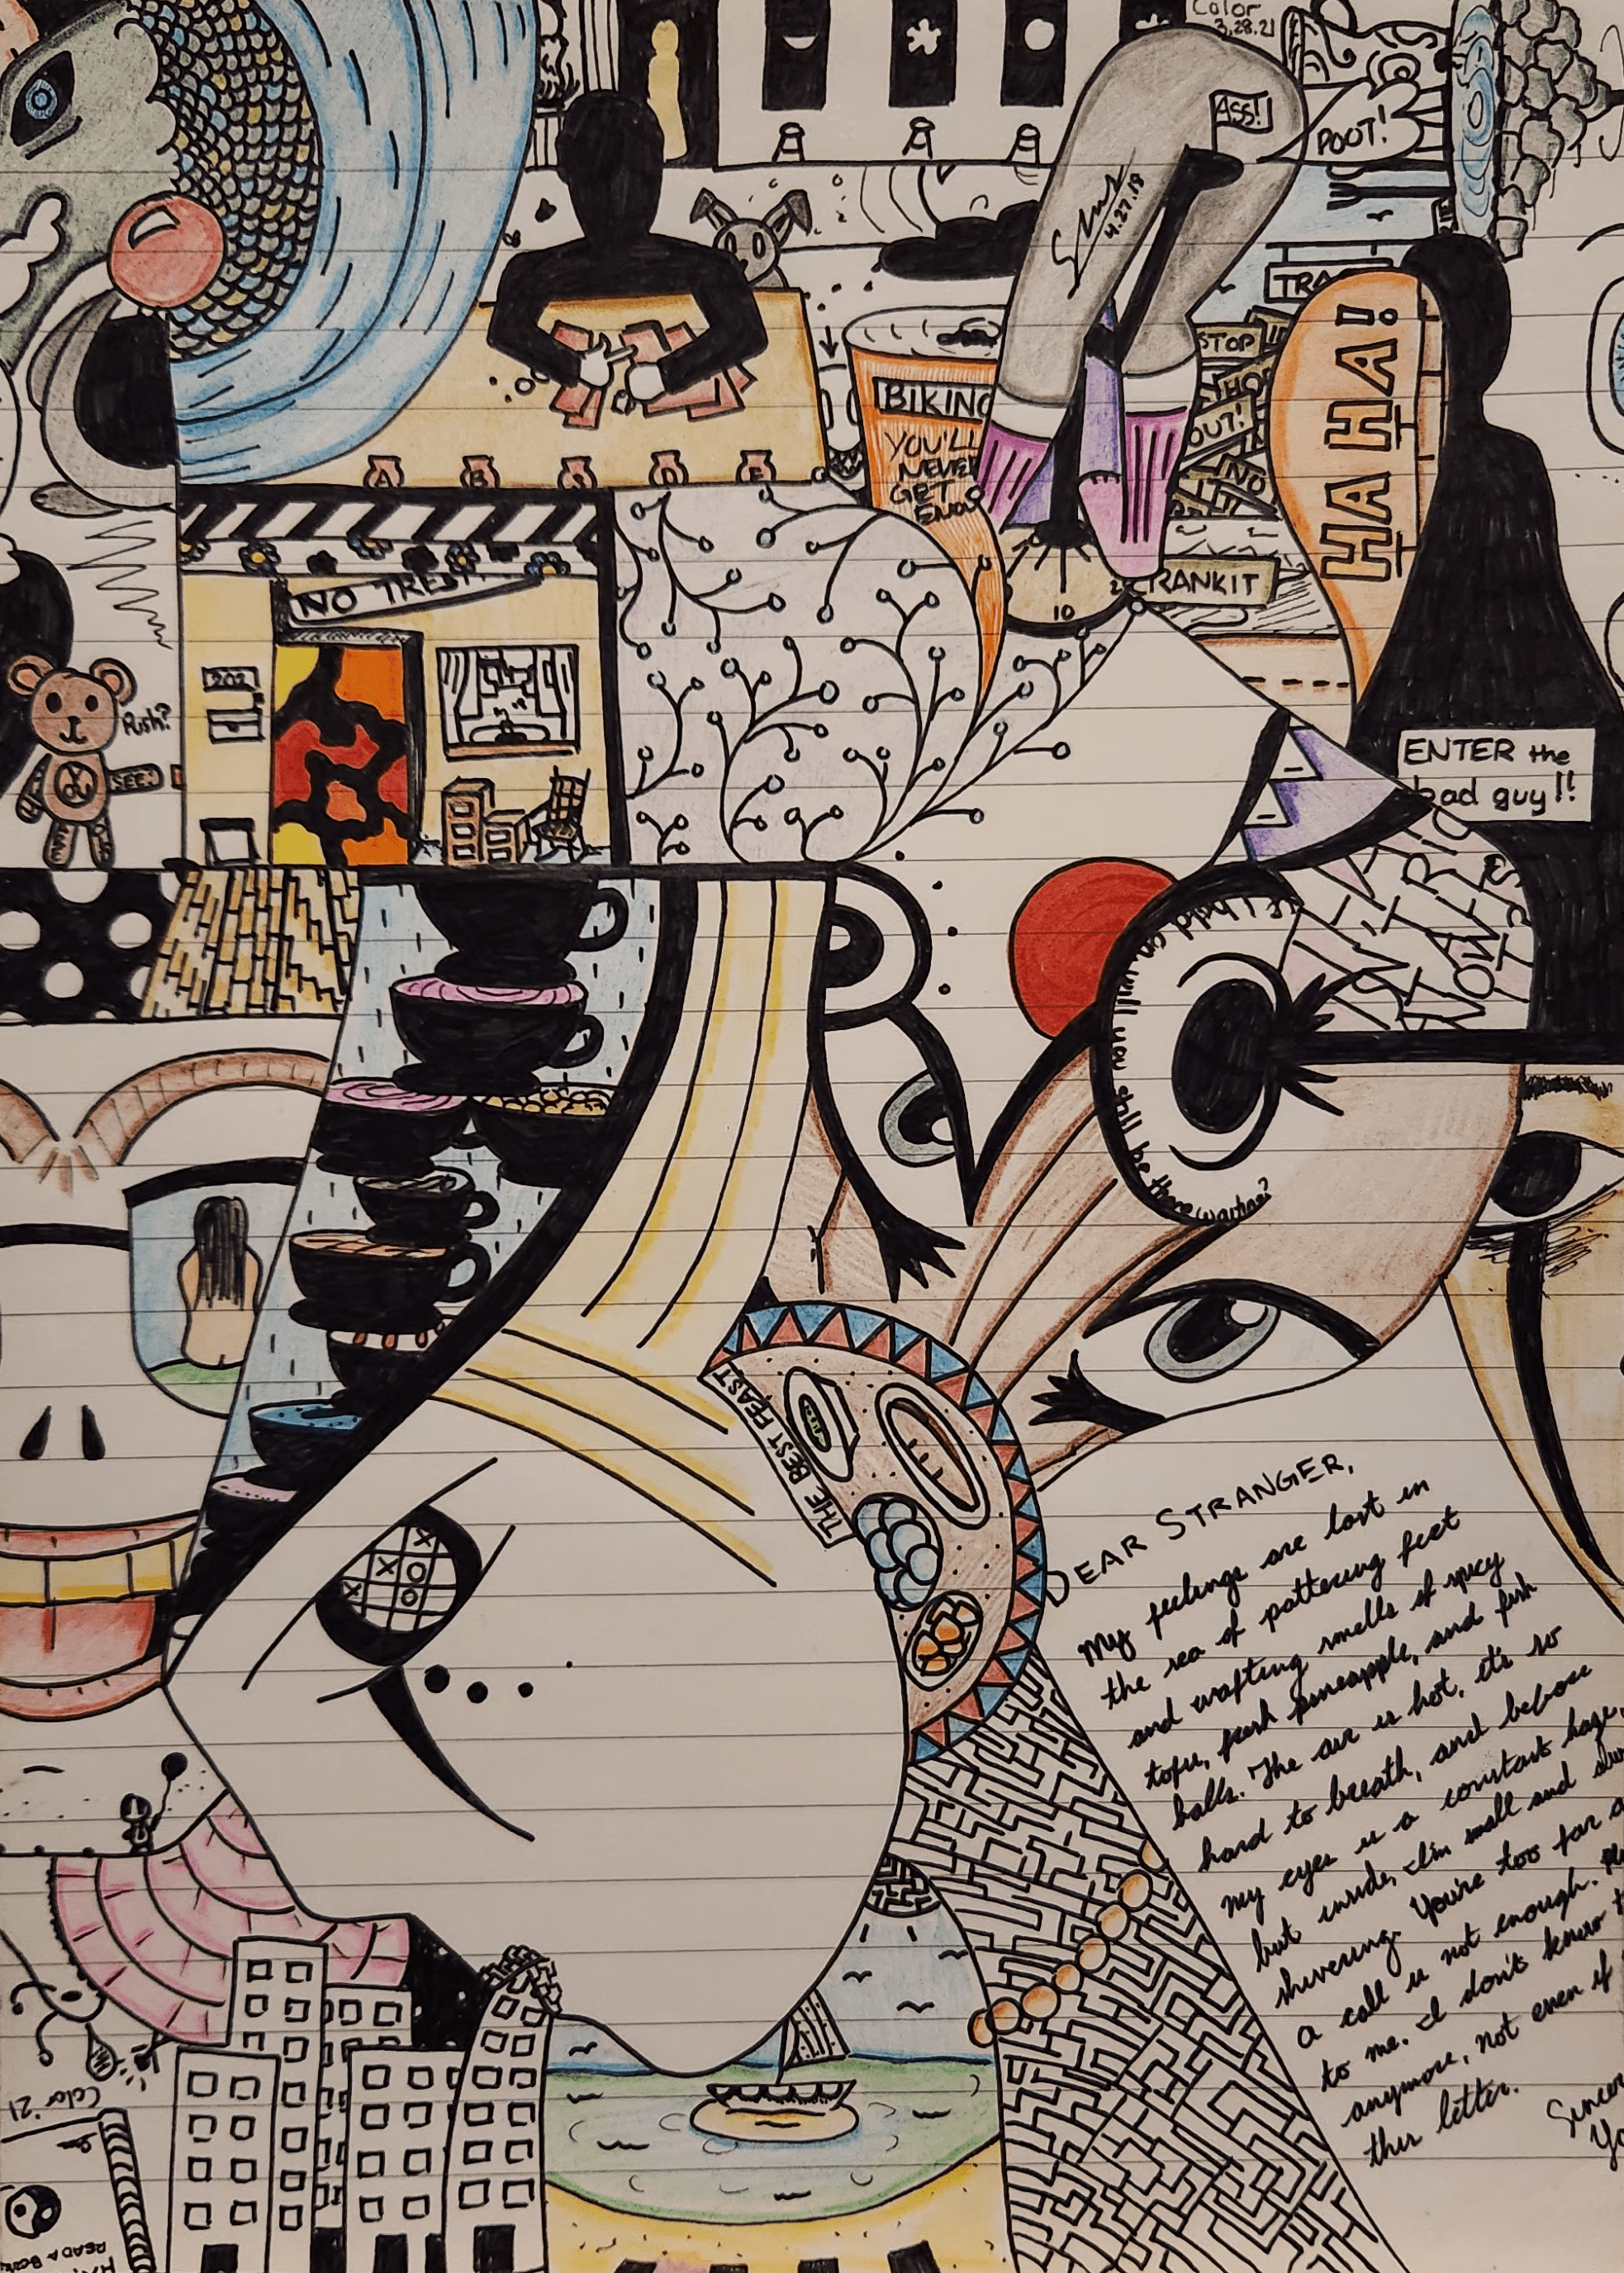 Color
3.28.21
ASS!
POOT!
4.27.18
TRA
STOP
HO
OUT!
NO
BIKING
YOU'LL
NEVER
GET
ENOU
HA HA!
A B S D E
NO TRES
10
2
RANKIT
202
Push?
SEE!
ENTER the
bad guy!!
If I hadd on will you still be there waiting?
THE BEST FEAST
X
X O
X O
DEAR STRANGER,
My feelings are lost in
the sea of pattering feet
and wafting smells of spicy
tofu, fresh pineapple, and fish
balls. The air is hot, it's so
hard to breath, and before
my eyes is a constant haze,
but inside, I'm small and
shivering. You're too far
a call is not enough.
to me. I don't know
anymore, not even if
this letter.
Sincer
Yo
Color '21
READ A BOOK